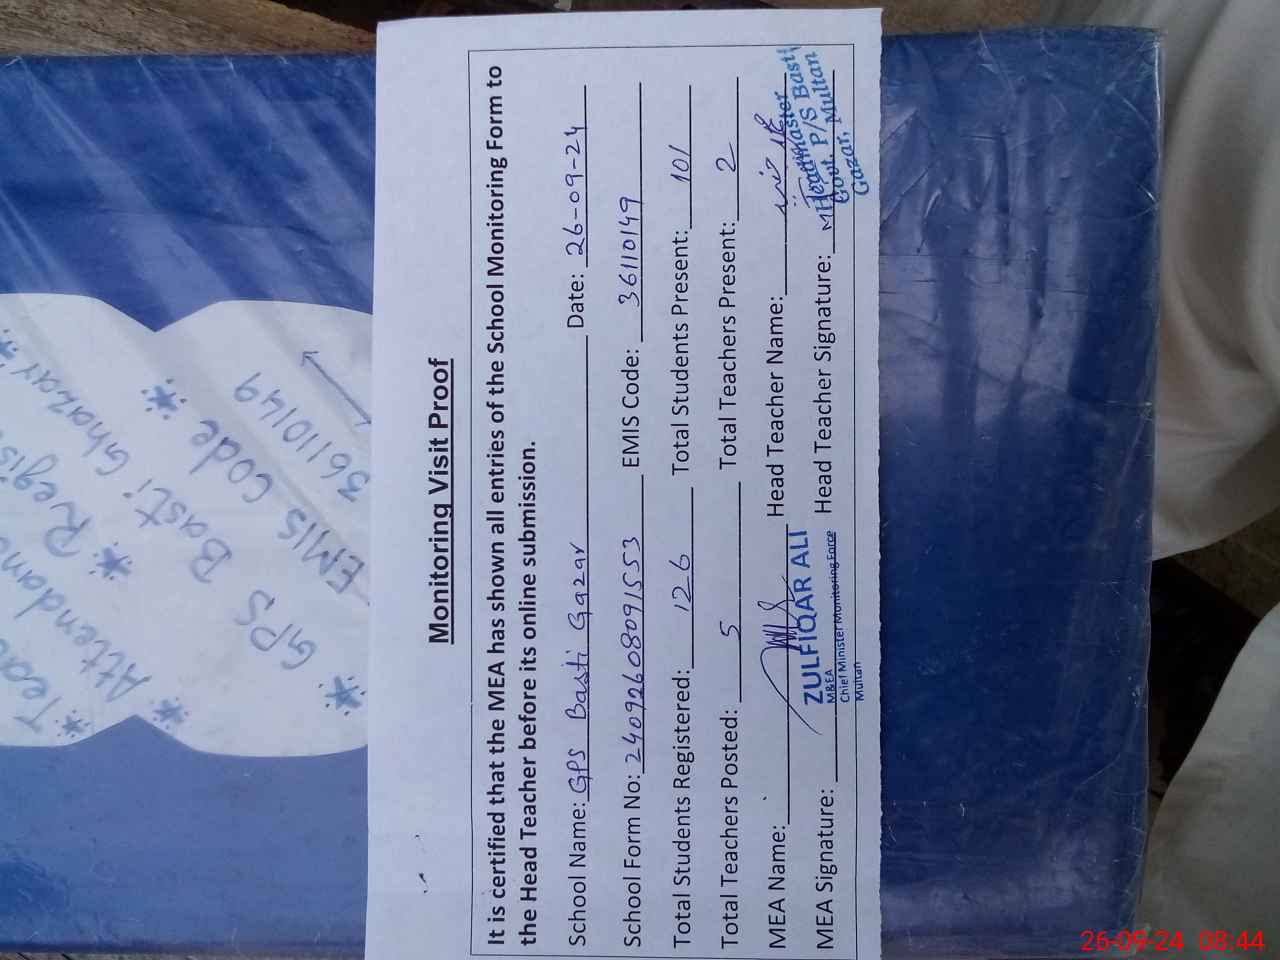 Monitoring Visit Proof
It is certified that the MEA has shown all entries of the School Monitoring Form to
the Head Teacher before its online submission.
School Name: GPS Basti Gazar Date: 26-09-24
School Form No: 24092608091553 EMIS Code: 36110149
Total Students Registered: 126 Total Students Present: 101
Total Teachers Posted: 5 Total Teachers Present: 2
MEA Name: Head Teacher Name:
MEA Signature: Head Teacher Signature:
ZULFIQAR ALI
M&EA
Chief Minister Monitoring Force
Multan
Headmaster
Govt. P/S Basti
Gazar, Multan
Attendance
* Regis
* GPS Basti Ghazar *
* EMIS Code *
36110149
26-09-24 08:44